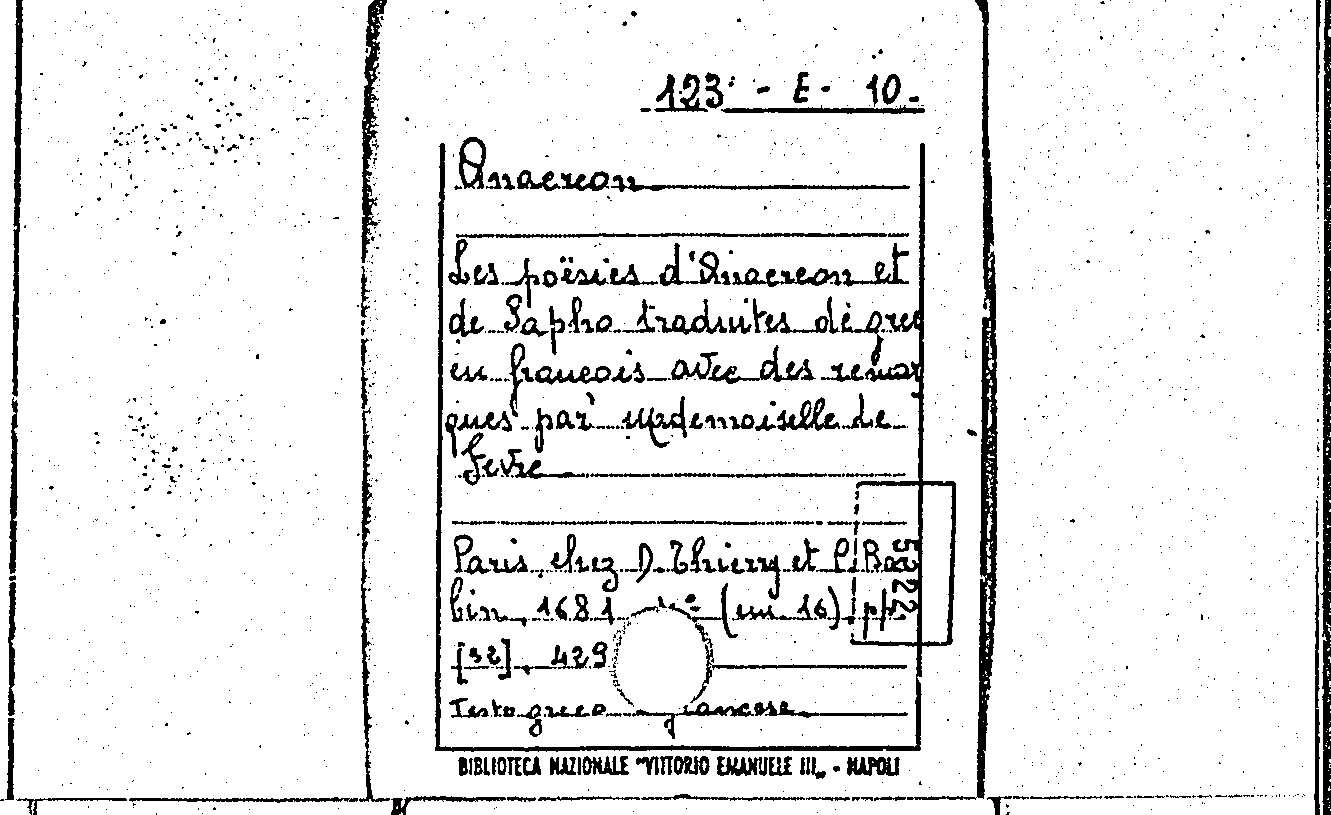 123 - E - 10.
Anacreon
Les poësies d'Anacreon et
de Sapho traduites de grec
en francois avec des remar
ques par Mademoiselle Le
Fevre
Paris, chez D. Thierry et C. Bar
bin, 1681 (cm. 16). pp.
[32], 429
5222
Testo greco francese
BIBLIOTECA NAZIONALE "VITTORIO EMANUELE III„ - NAPOLI